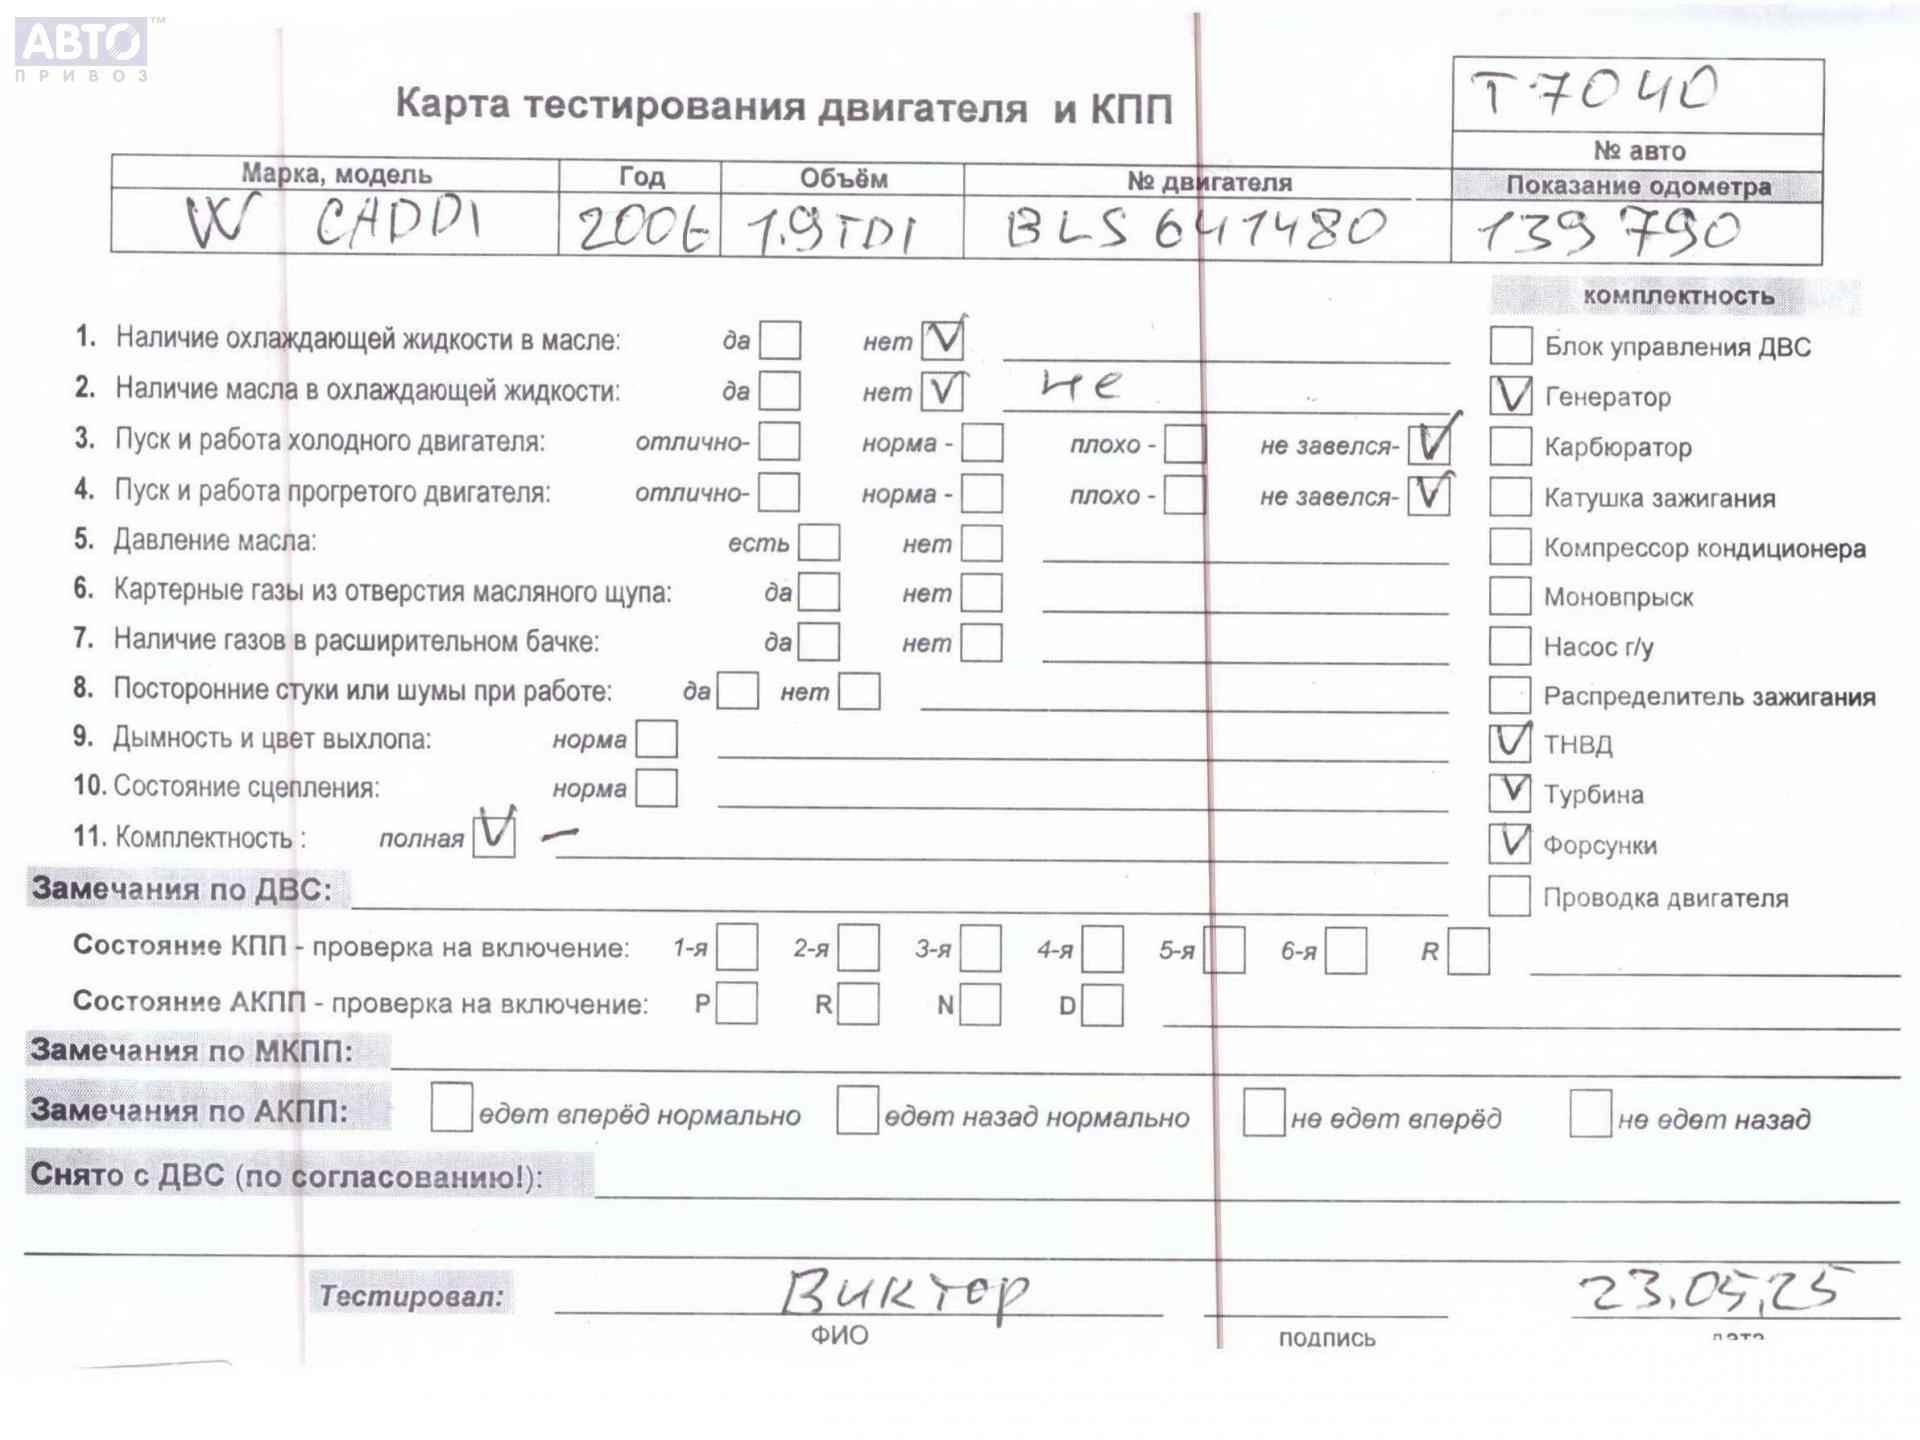 АВТО™
ПРИВОЗ
Карта тестирования двигателя и КПП
Т7040
№ авто
Марка, модель Год Объём № двигателя Показание одометра
VW CADDI 2006 1.9 TDI BLS 641480 139 790
комплектность
1. Наличие охлаждающей жидкости в масле: да нет V
Блок управления ДВС
2. Наличие масла в охлаждающей жидкости: да нет V не
V Генератор
3. Пуск и работа холодного двигателя: отлично- норма - плохо - не завелся- V
Карбюратор
4. Пуск и работа прогретого двигателя: отлично- норма - плохо - не завелся- V
Катушка зажигания
5. Давление масла: есть нет
Компрессор кондиционера
6. Картерные газы из отверстия масляного щупа: да нет
Моновпрыск
7. Наличие газов в расширительном бачке: да нет
Насос г/у
8. Посторонние стуки или шумы при работе: да нет
Распределитель зажигания
9. Дымность и цвет выхлопа: норма
V ТНВД
10. Состояние сцепления: норма
V Турбина
11. Комплектность : полная V –
V Форсунки
Замечания по ДВС:
Проводка двигателя
Состояние КПП - проверка на включение: 1-я 2-я 3-я 4-я 5-я 6-я R
Состояние АКПП - проверка на включение: P R N D
Замечания по МКПП:
Замечания по АКПП: едет вперёд нормально едет назад нормально не едет вперёд не едет назад
Снято с ДВС (по согласованию!):
Тестировал: Виктор 23.05.25
ФИО подпись дата